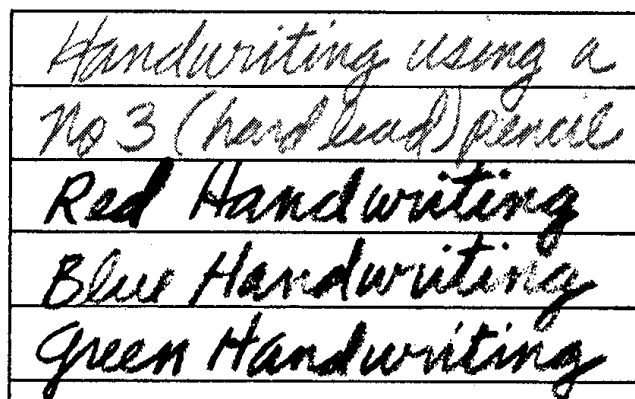 Handwriting using a
No 3 (hard lead) pencil
Red Handwriting
Blue Handwriting
Green Handwriting